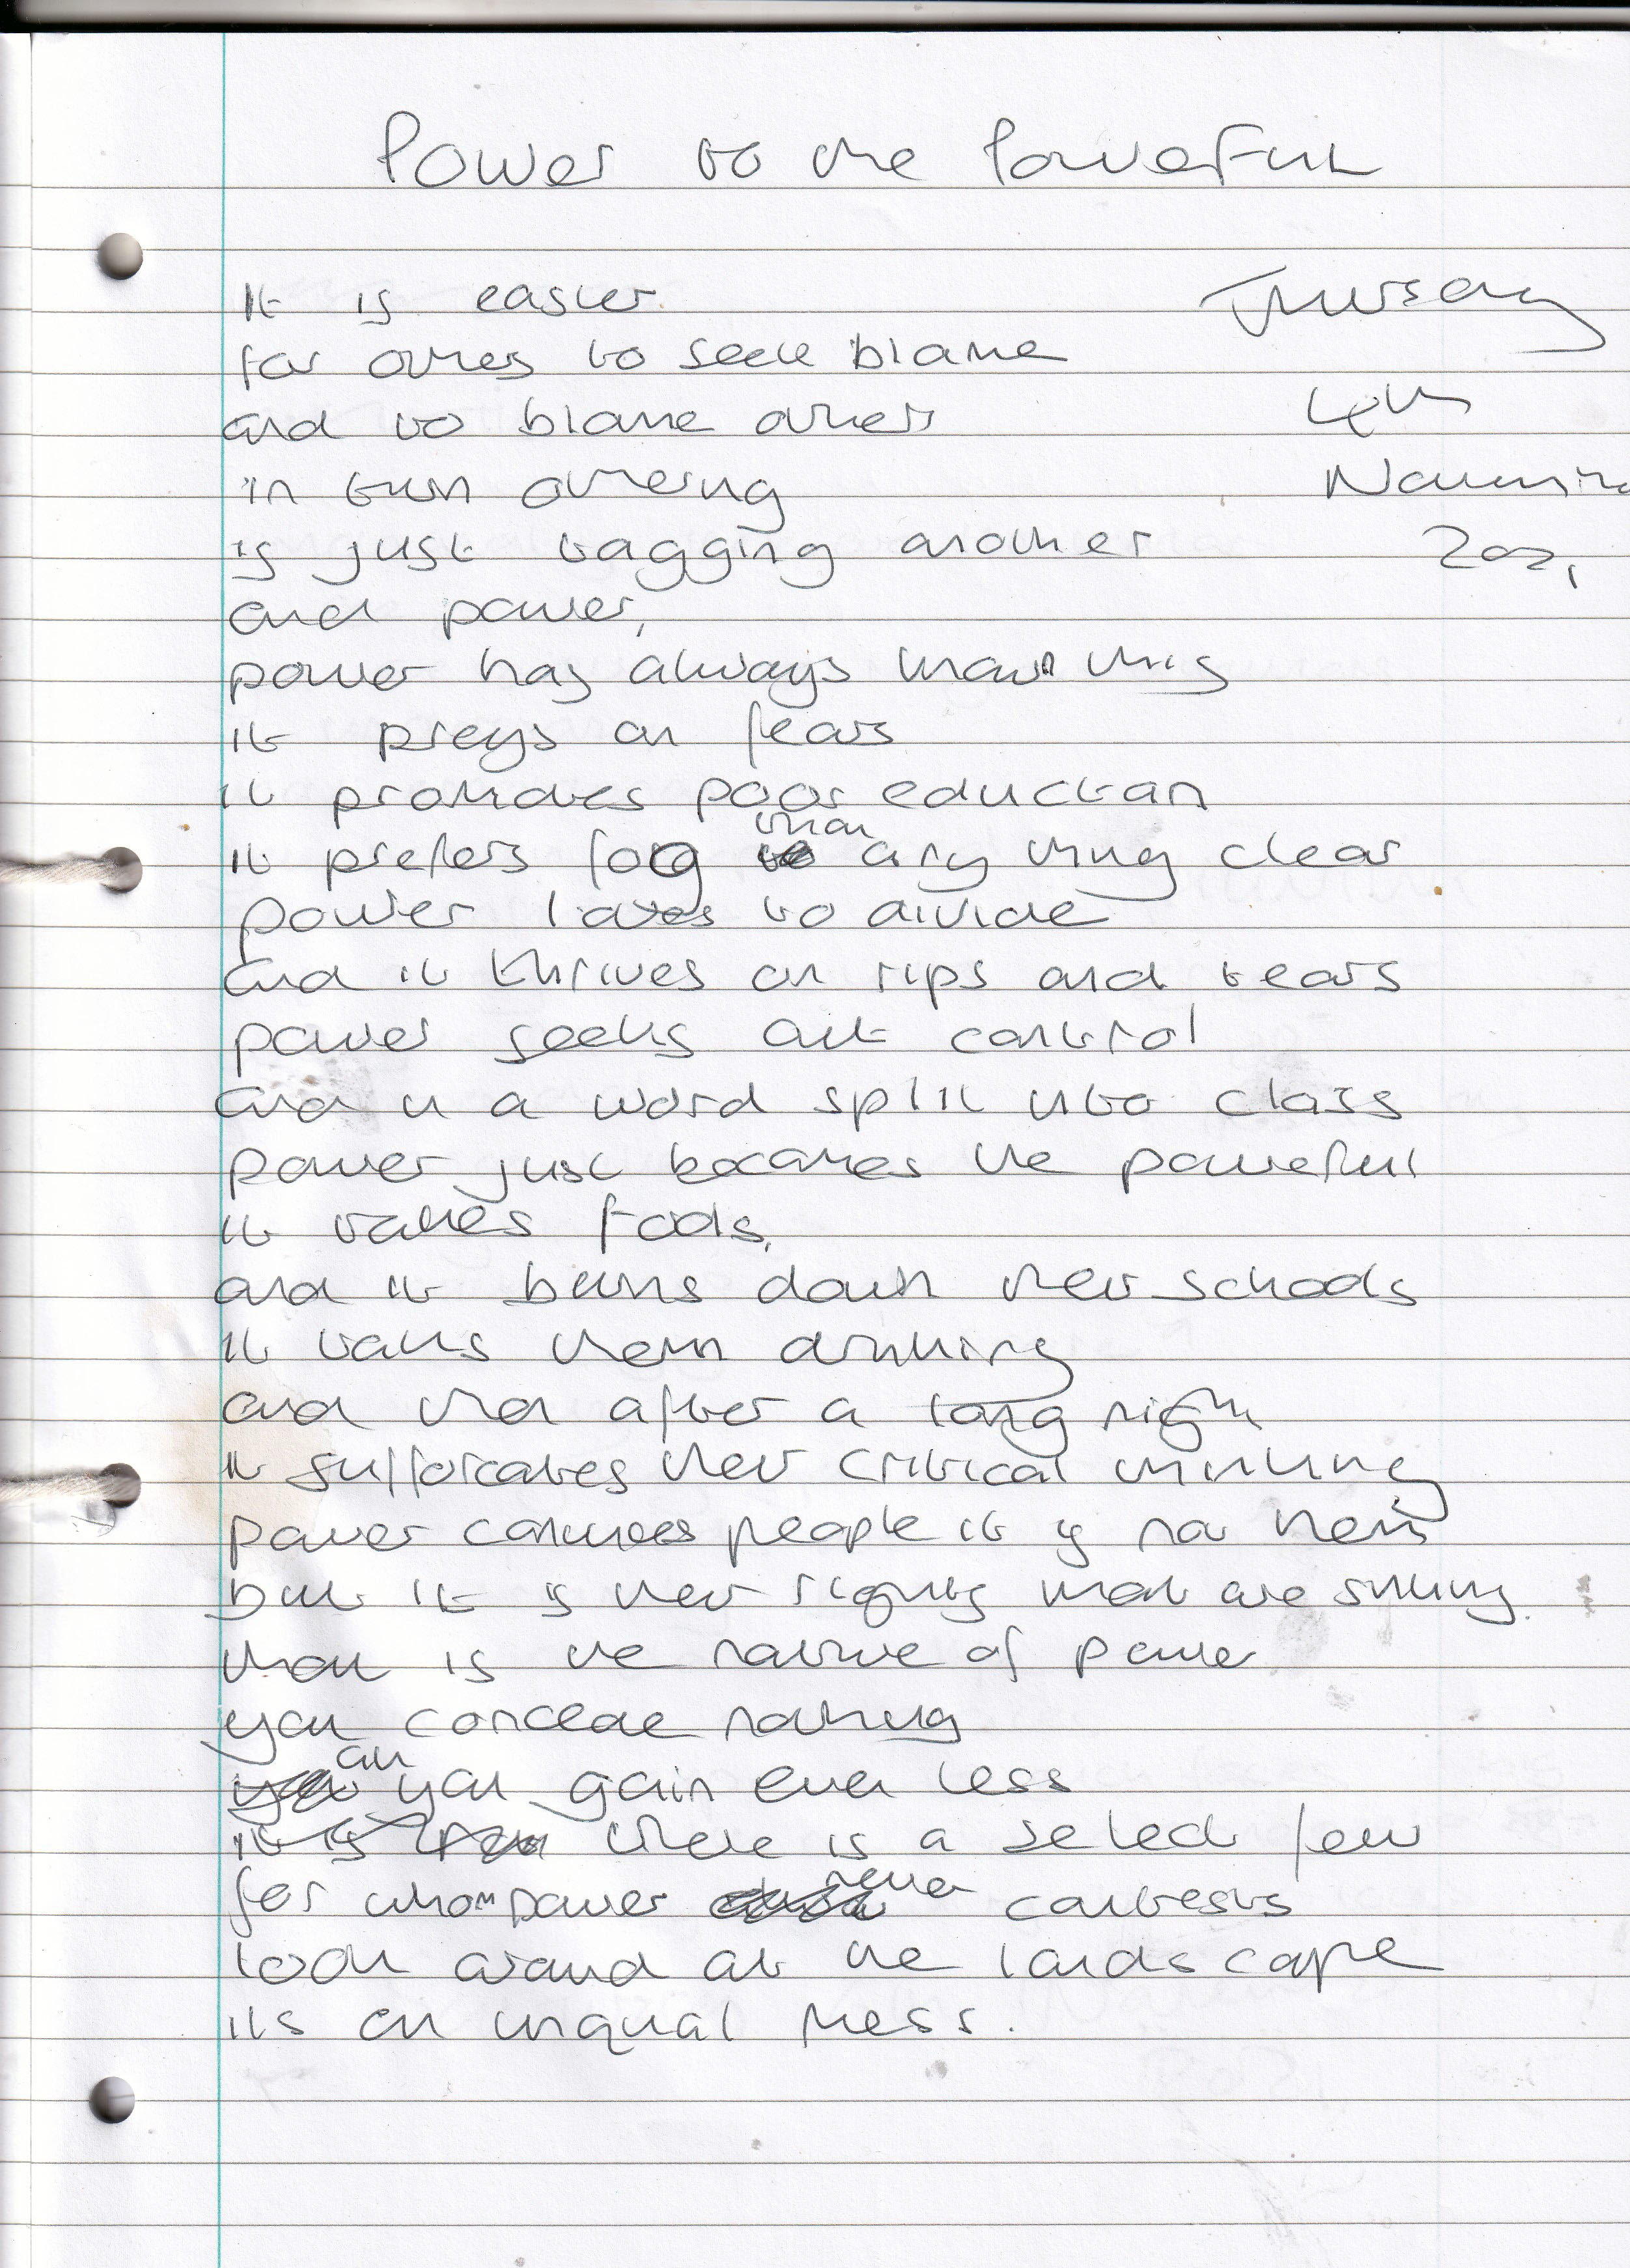 Power to the Powerful
It is easier
Thursday
for others to seek blame
and to blame others
4th
in turn othering
November
is just tagging another
2021
and power,
power has always known this
it preys on fears
it promotes poor eduction
it prefers fog than any thing clear
power loves to divide
and it thrives on rips and tears
power seeks out control
and in a word split into class
power just becomes the powerful
it takes fools,
and it burns down their schools
it takes them drinking
and then after a long night
it sufforcates their critical thinking
power convinces people it is now theirs
but it is their rights that are sinking
that is the nature of power
you concede nothing
you gain even less
there is a select few
for whom power never contests
look around at the landscape
its an unqual mess.